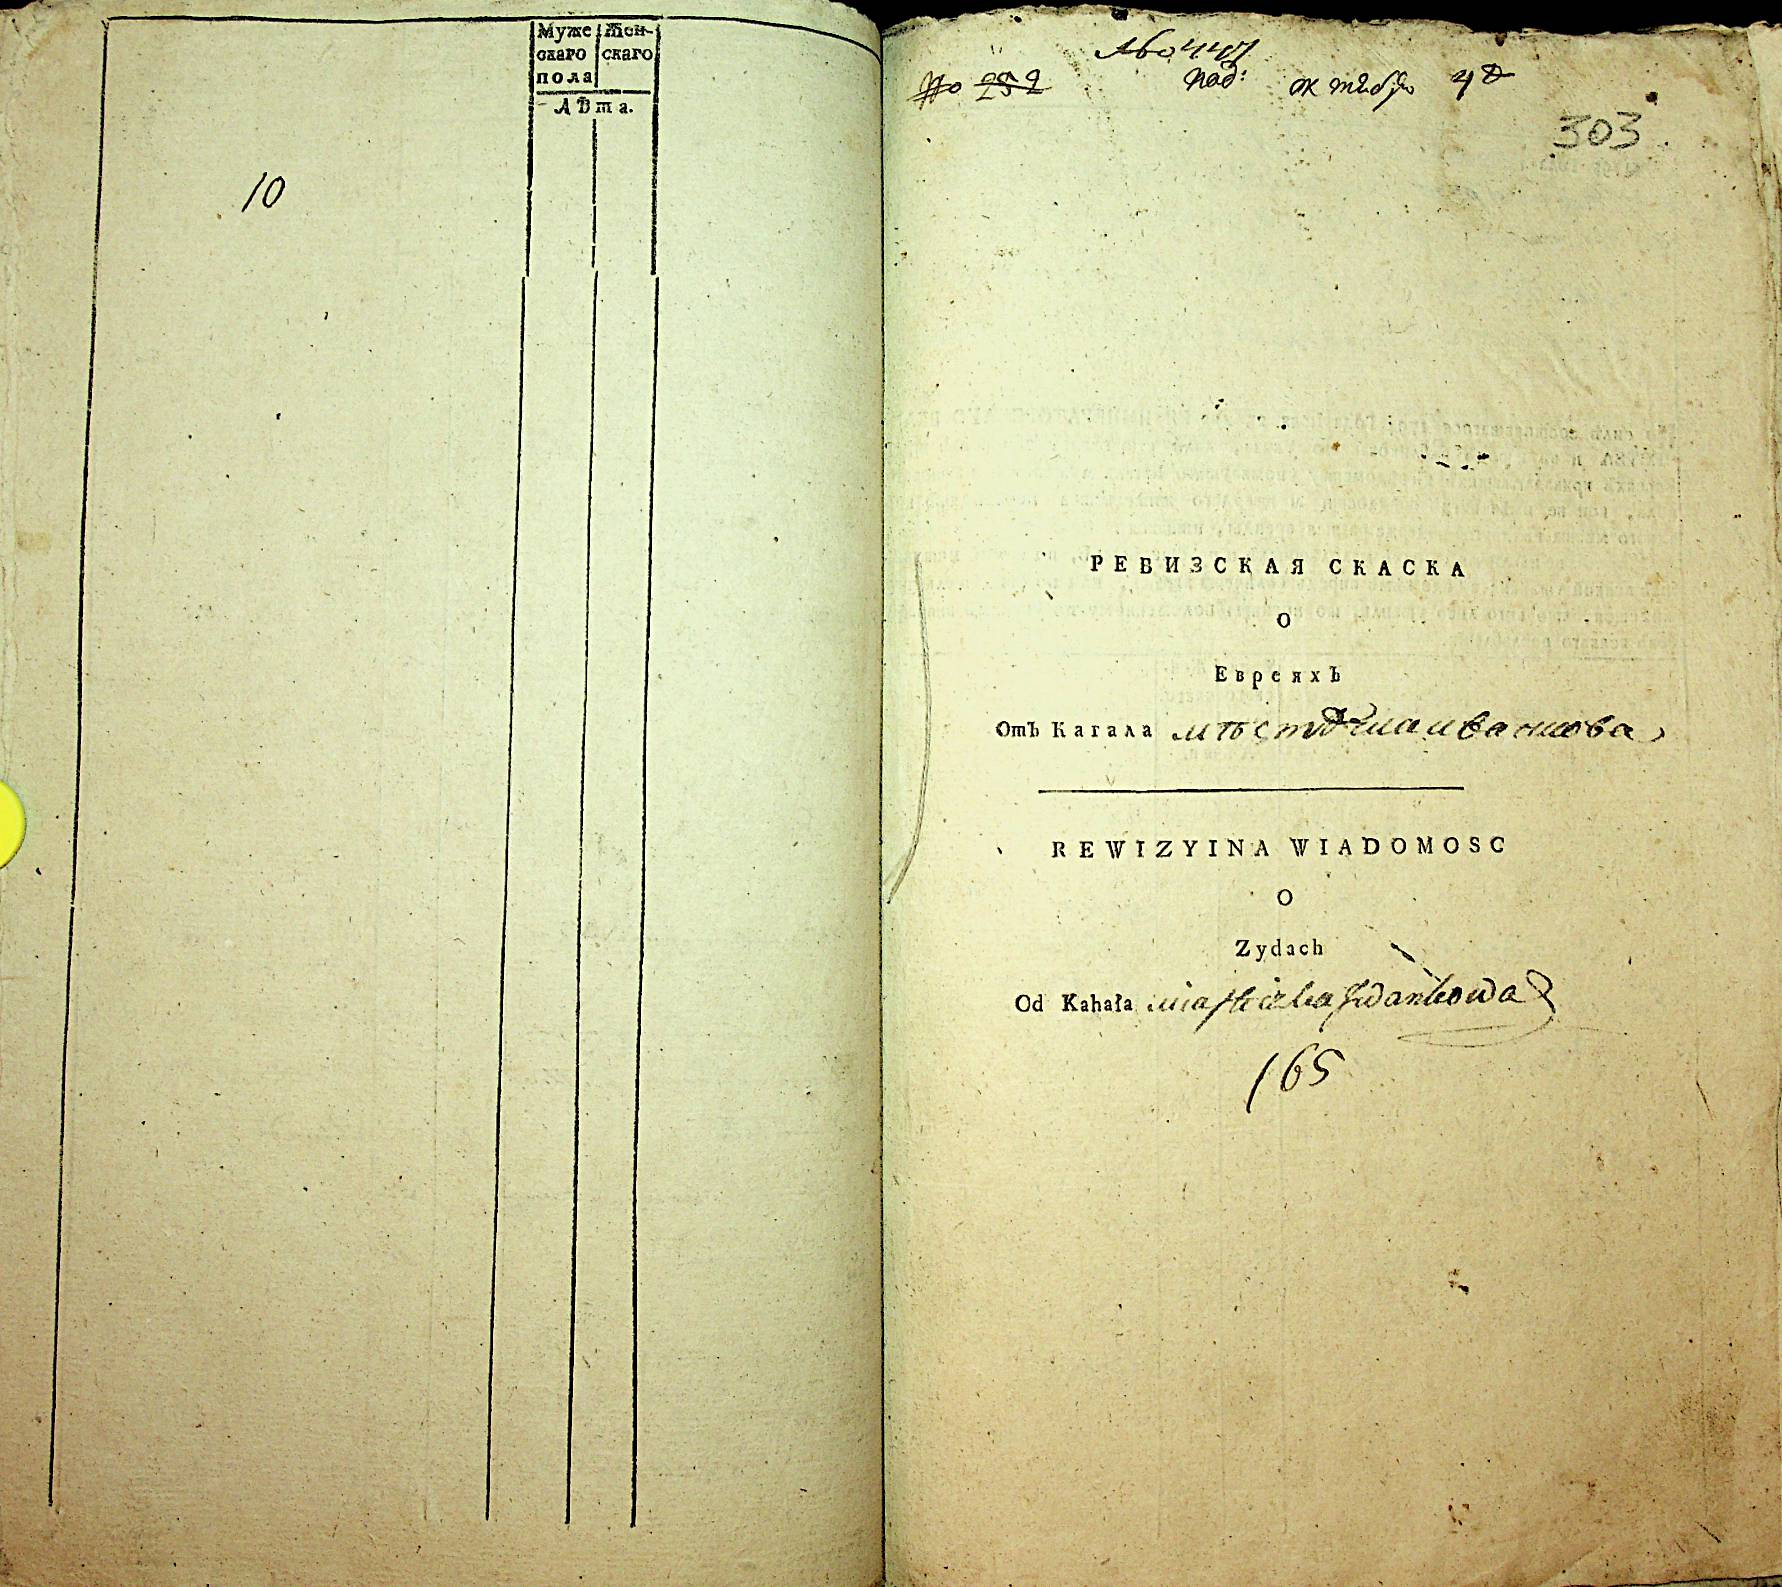 Муже Жен-
скаго скаго
пола
Лѣта.
10
No 447
No 252
под: октября 4
303
РЕВИЗСКАЯ СКАСКА
О
Евреяхъ
Отъ Кагала мѣстечка иванкова
REWIZYINA WIADOMOSC
O
Zydach
Od Kahała miasteczka Iwankowa
165